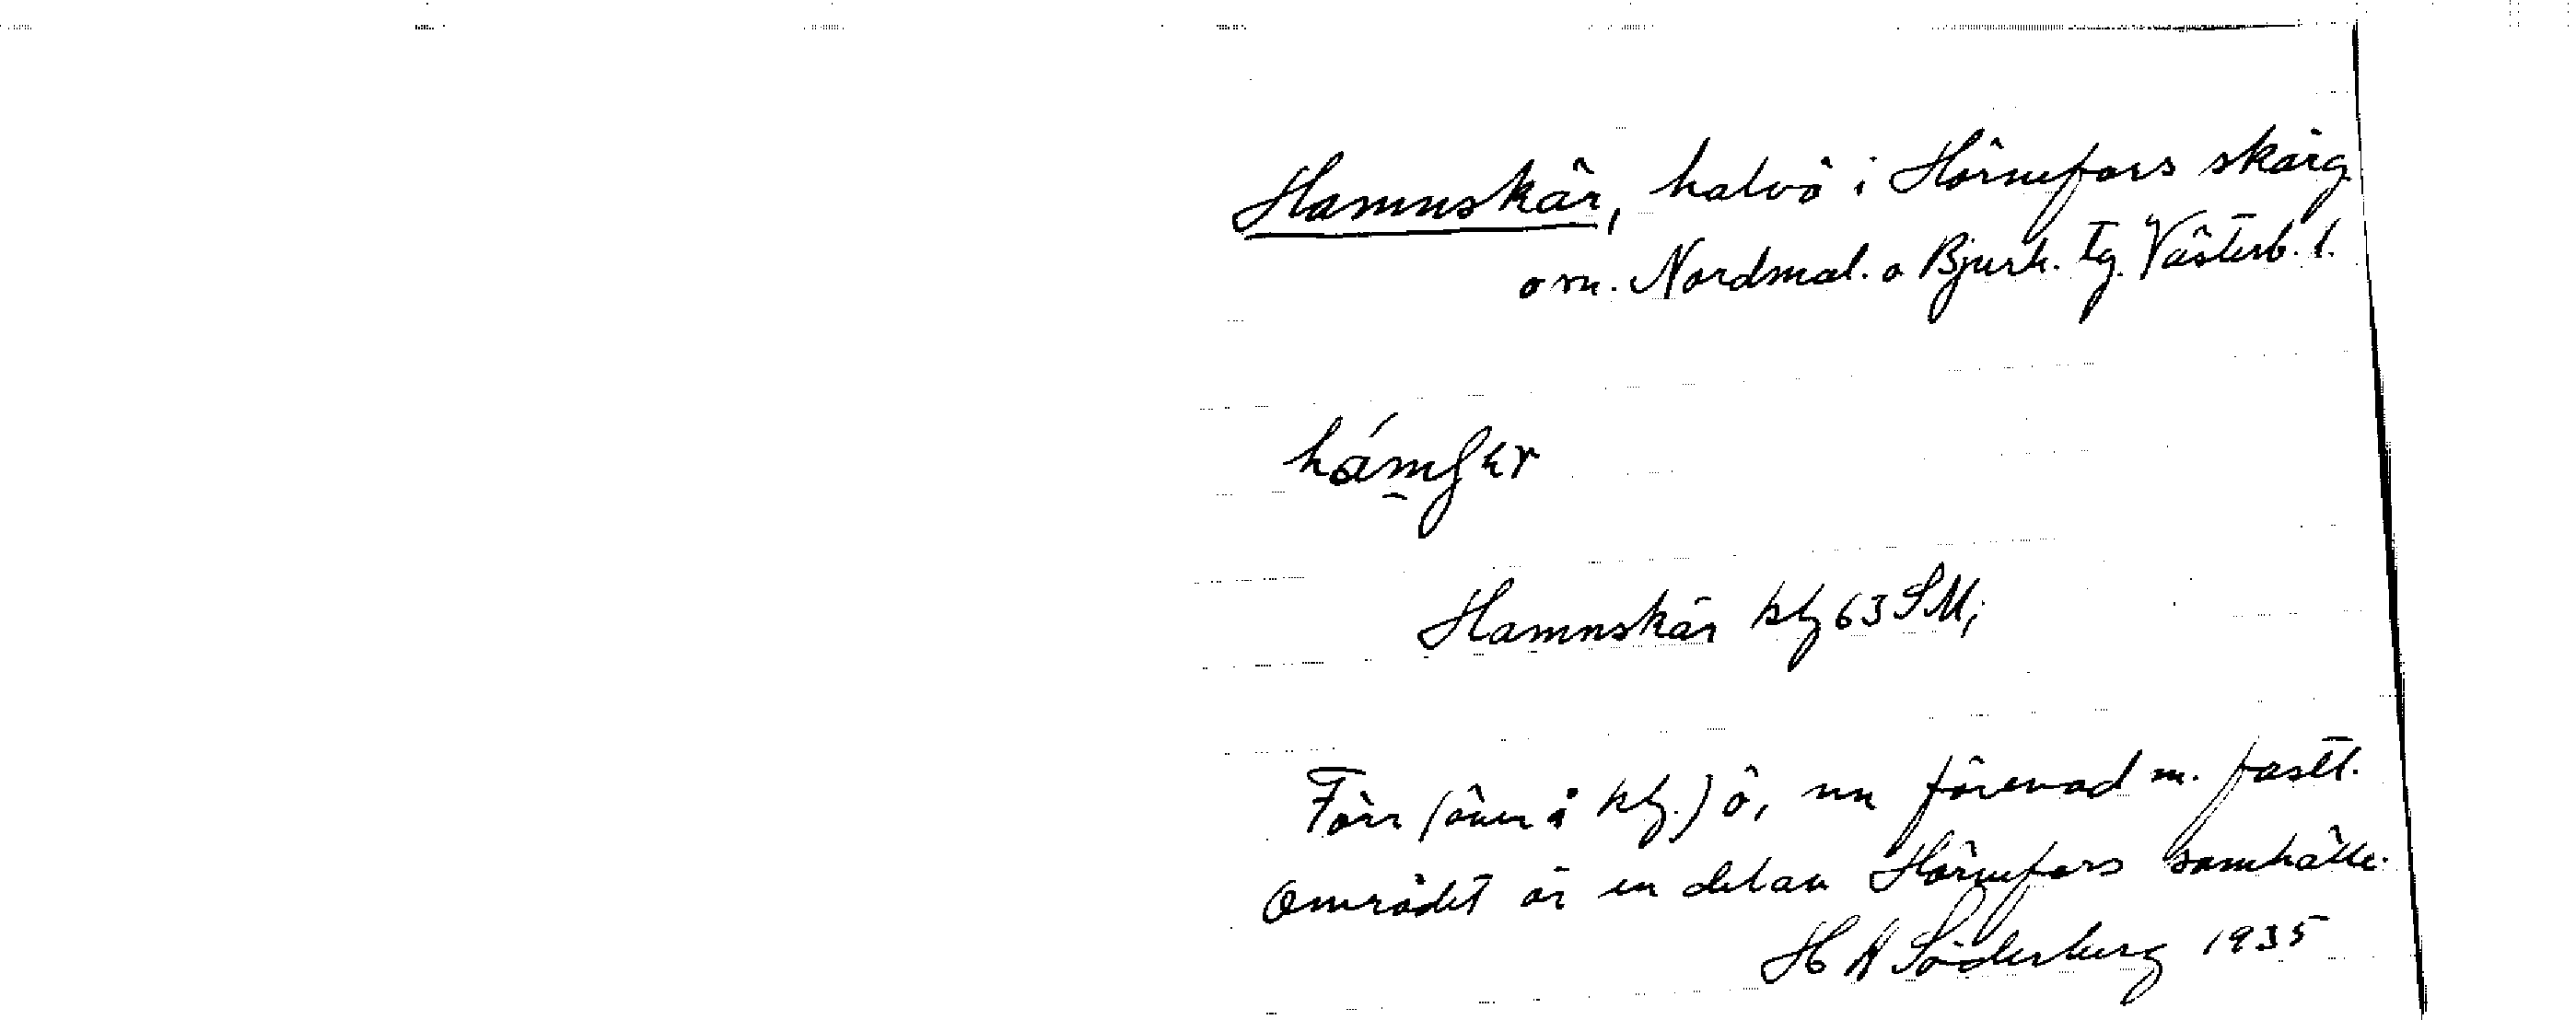 Hamnskär, halvö i Hörnefors skärg.
om. Nordmal. o Bjurh. tg. Västerb. l.
Hamnskär klz 63 SM;
Förr (även å klz.) ö, nu förenad m. fastl.
Området är en del av Hörnefors samhälle.
H A Söderberg 1935